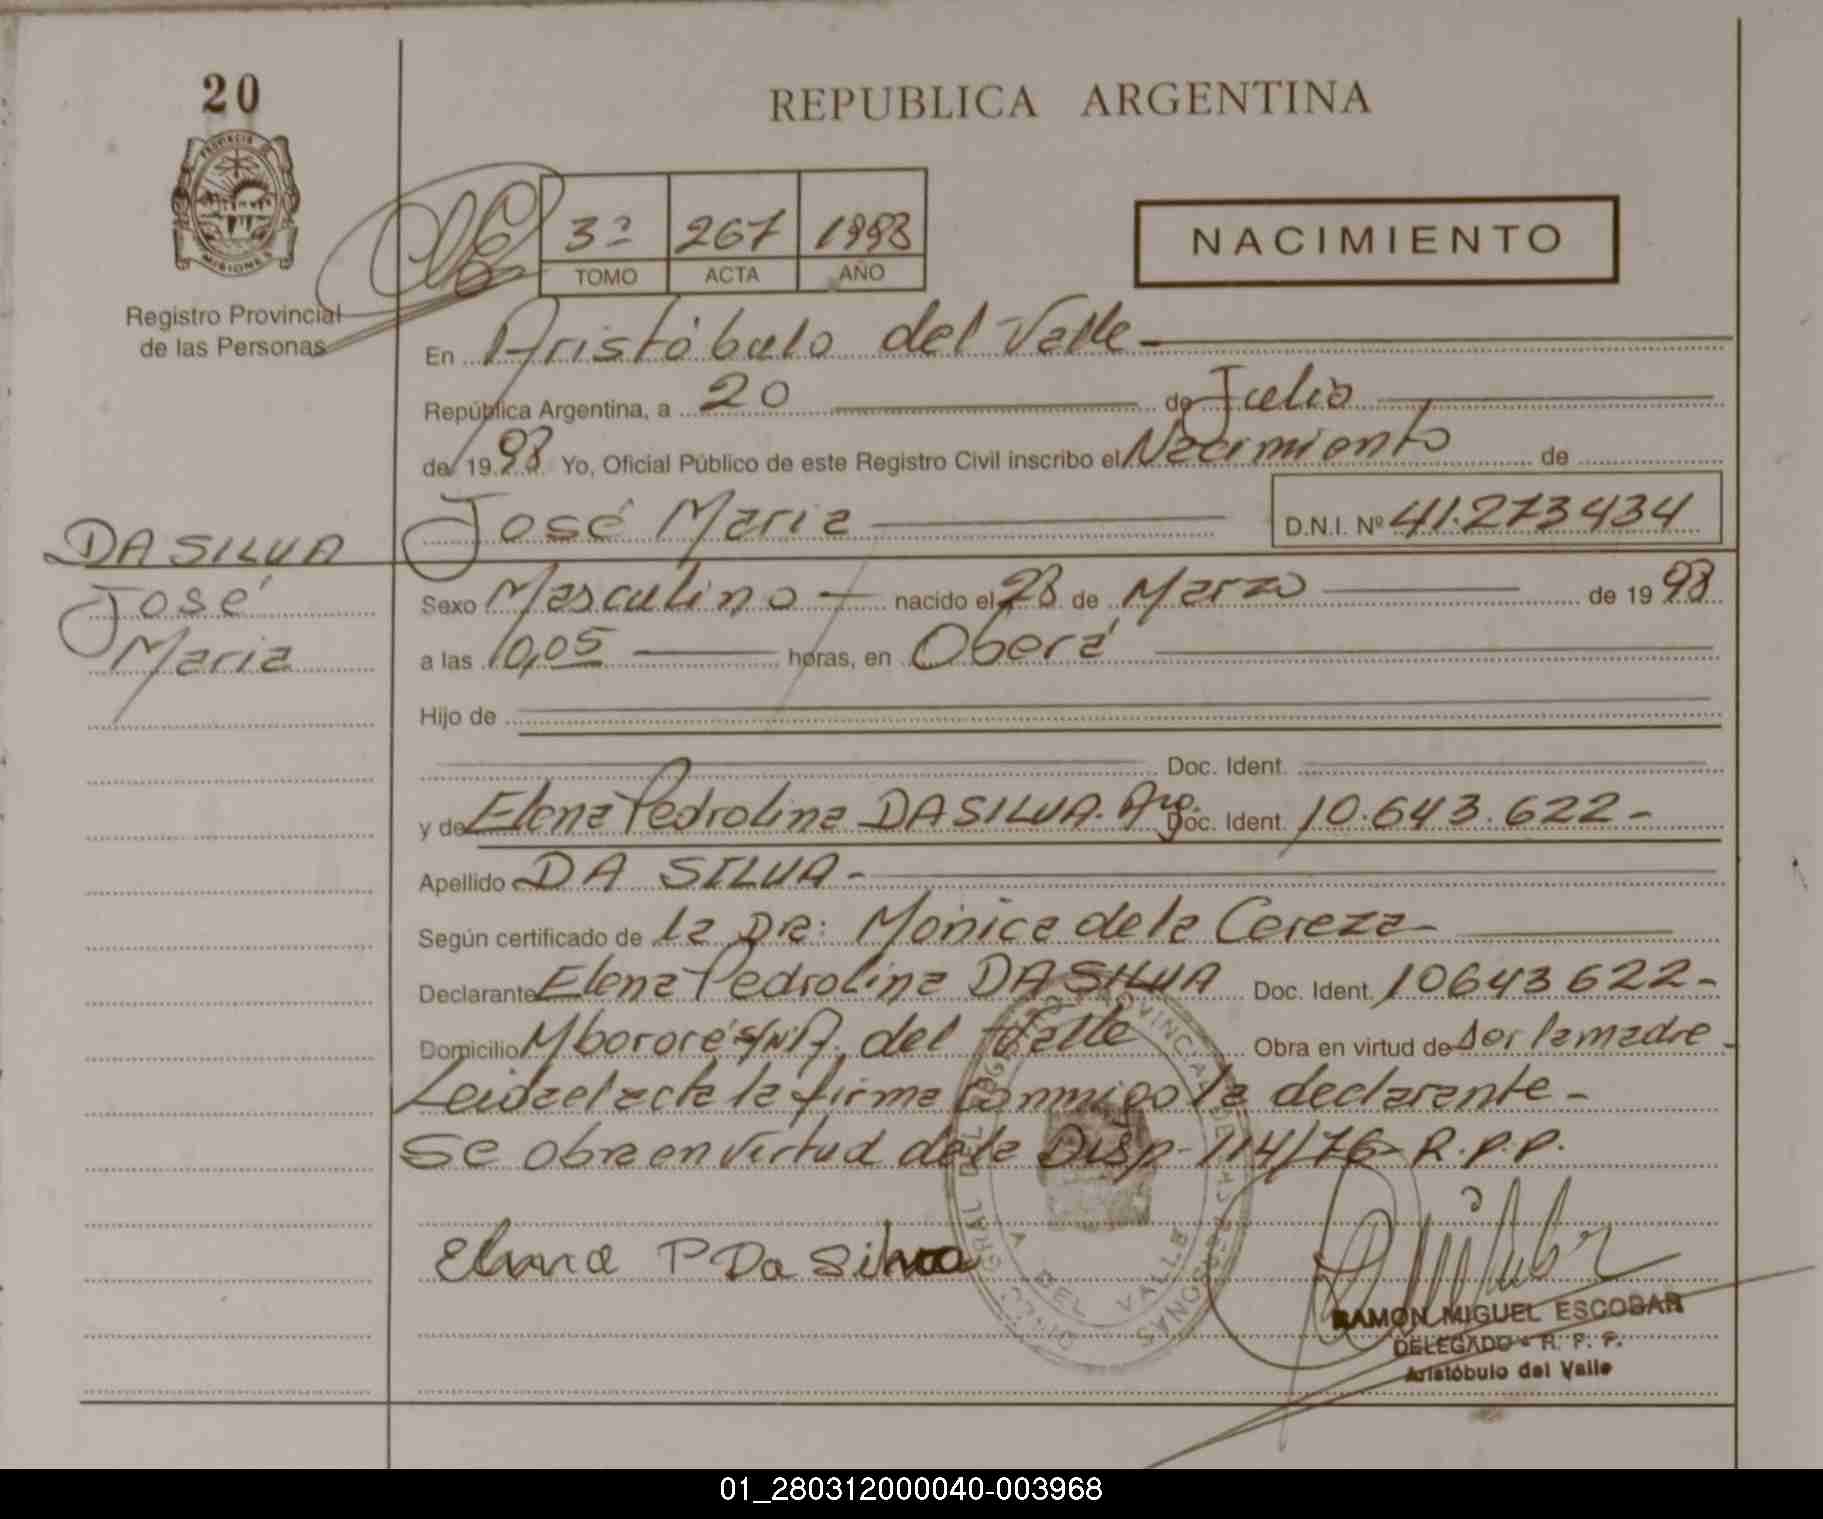 20
REPUBLICA ARGENTINA
PROVINCIA DE
MISIONES
Registro Provincial
de las Personas
3º 267 1998
TOMO ACTA AÑO
NACIMIENTO
En Aristóbulo del Valle
República Argentina, a 20 de Julio
de 1998 Yo, Oficial Público de este Registro Civil inscribo el Nacimiento de
José Maria D.N.I. Nº 41.273434
DA SILVA
José
Maria
Sexo Masculino nacido el 28 de Marzo de 1998
a las 10,05 horas, en Oberá
Hijo de
Doc. Ident.
y de Elena Pedrolina DA SILVA. Arg. Doc. Ident. 10.643.622-
Apellido DA SILVA-
Según certificado de la Dra: Mónica de la Cereza
Declarante Elena Pedrolina DA SILVA Doc. Ident. 10643622-
Domicilio Mbororé s/Nº A. del Valle Obra en virtud de ser la madre
Leida el acta la firma conmigo la declarante-
Se obra en virtud de la Disp- 114/76- R.P.P.
Elena P Da Silva
A. DEL VALLE
RAMON MIGUEL ESCOBAR
DELEGADO - R. P. P.
Aristóbulo del Valle
01_280312000040-003968